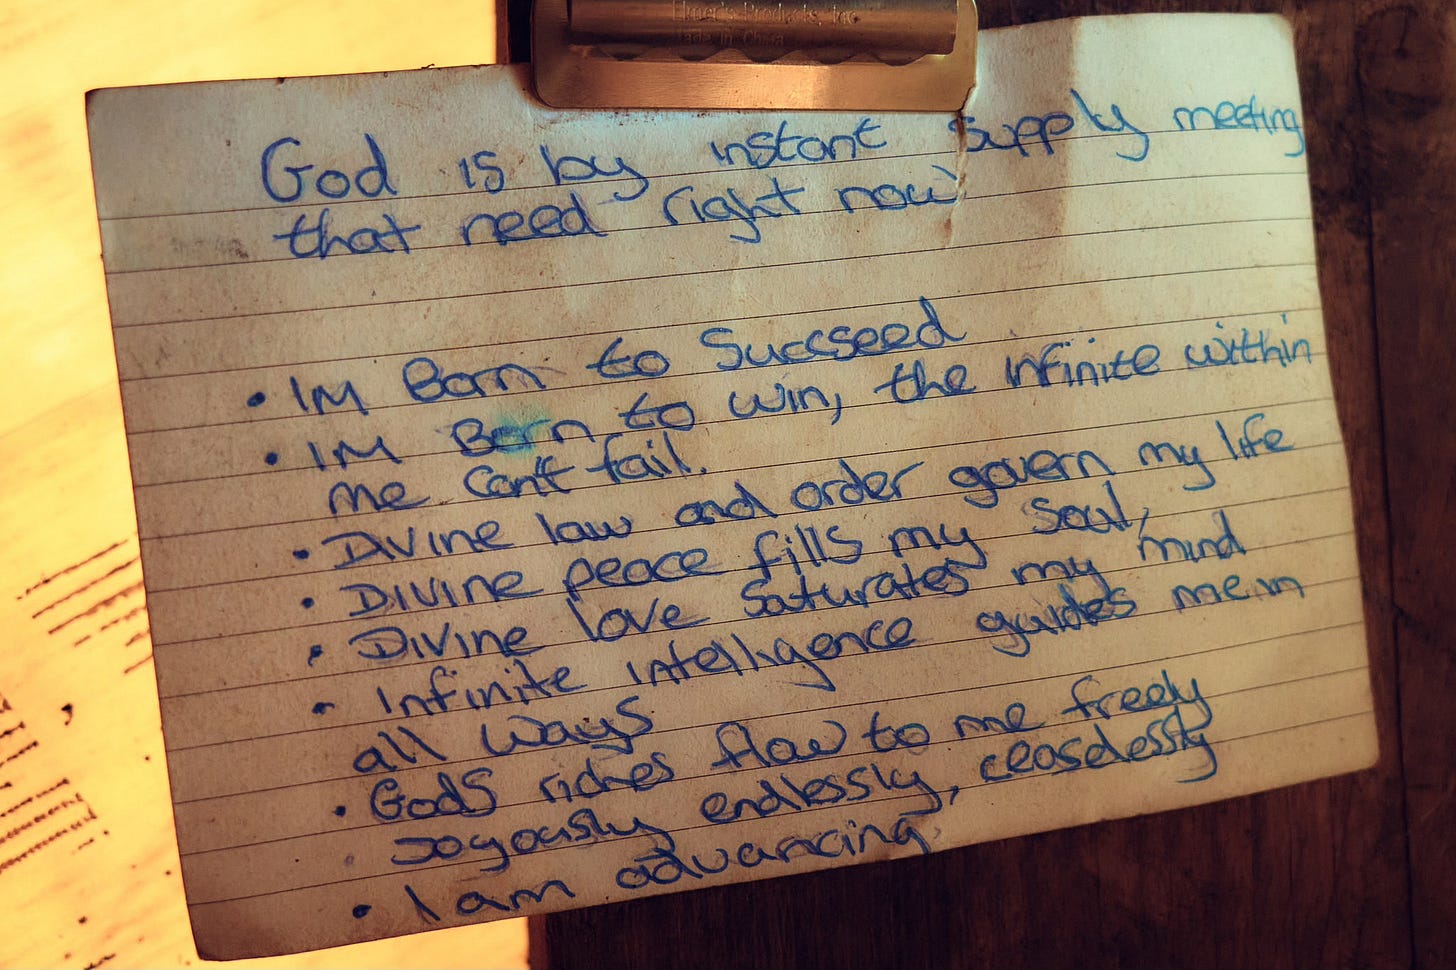 Elmer's Products, Inc
Made in China
God is by instant supply meeting
that need right now
• IM Born to Succseed
• IM Born to win, the infinite within
me Can't fail.
• Divine law and order govern my life
• Divine peace fills my soul,
• Divine love saturates my mind
• Infinite intelligence guides me in
all ways
• GodS riches flow to me freely
• Joyously endlessly, ceaselessly
• I am advancing,